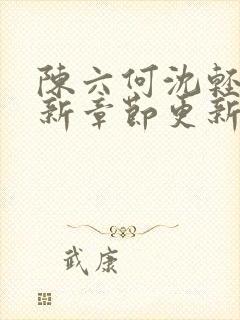 陳六何沈輕
新章節更新
武康